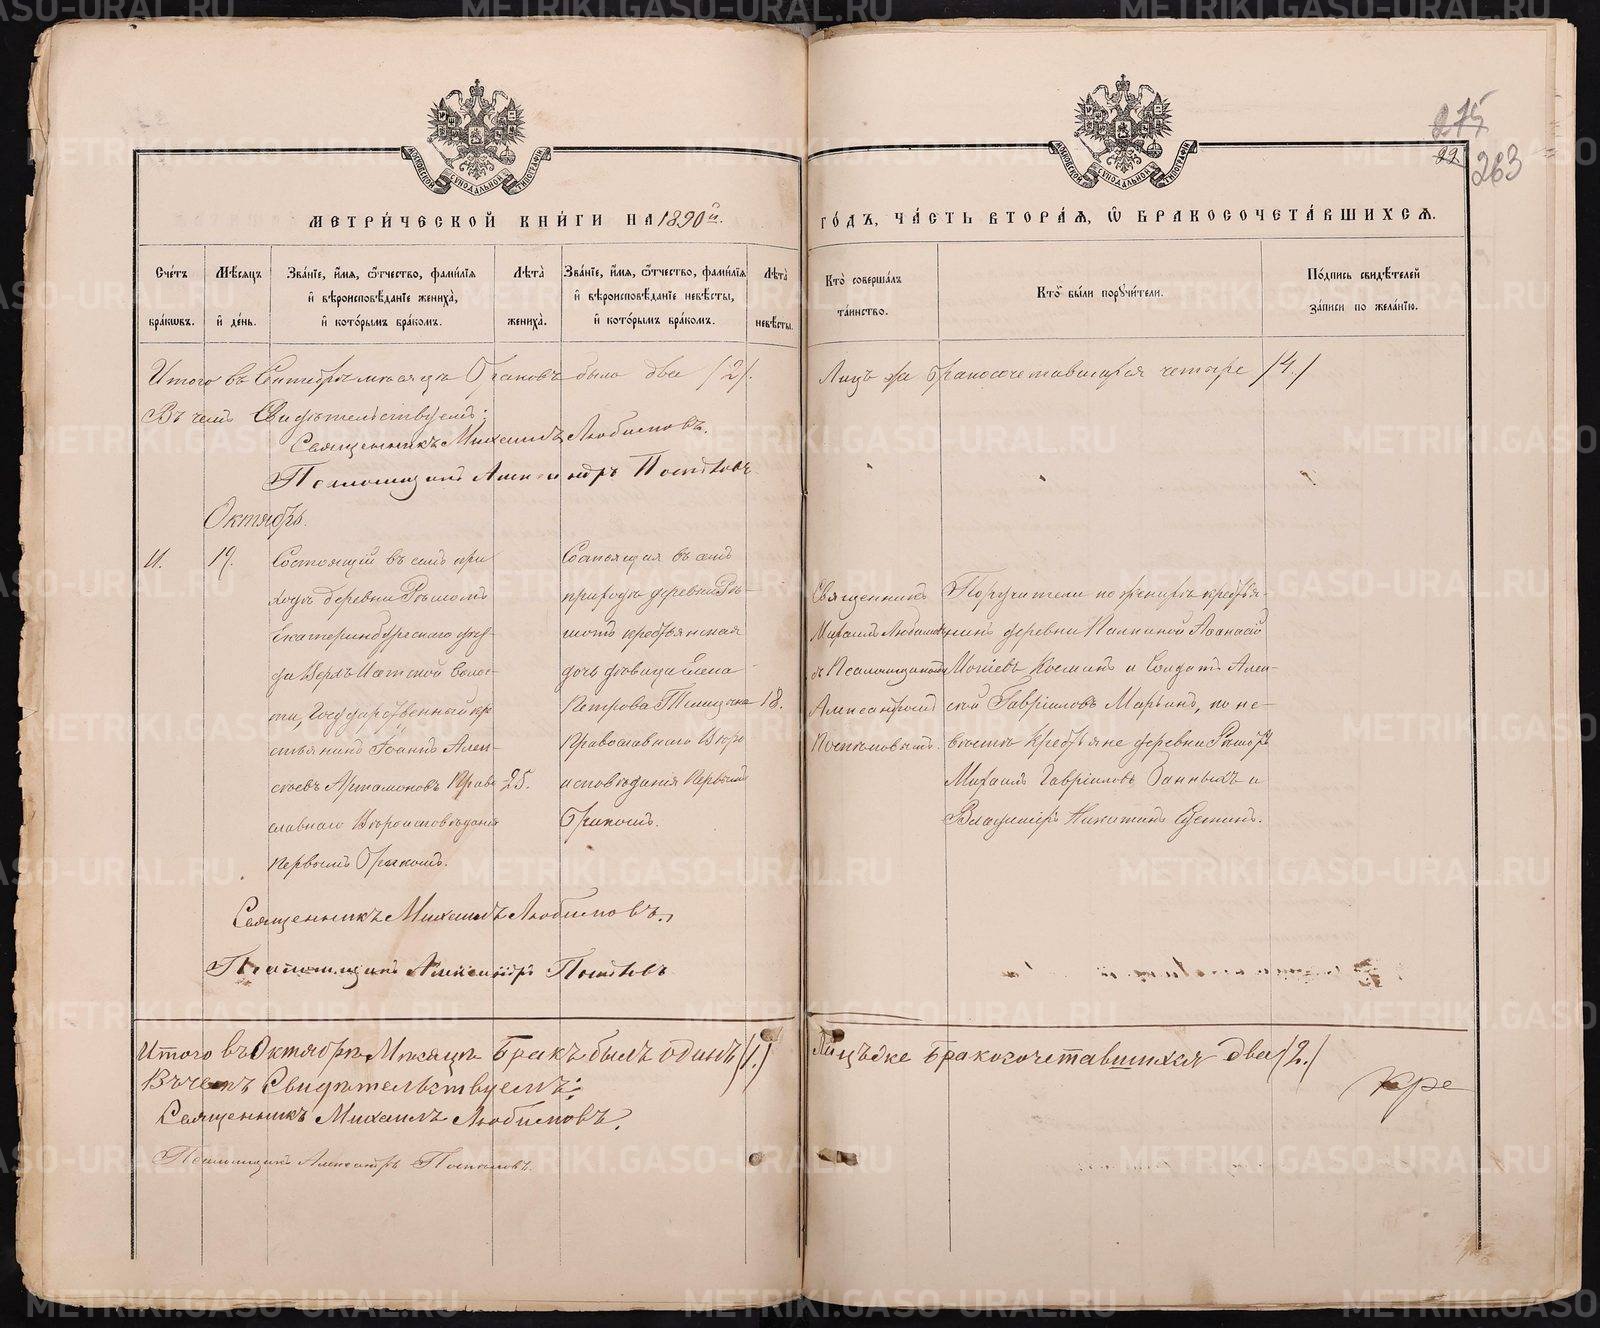 275
22.
263
МЕТРИ́ЧЕСКОЙ КНИ́ГИ НА 1890й.
ГО́ДЪ, ЧА́СТЬ ВТОРА́Ѧ, Ѽ БРАКОСОЧЕТА́ВШИХСѦ.
Сче́тъ бра́кѡвъ.
Мѣ́сѧцъ и҆ де́нь.
Зва́нїе, и҆́мѧ, ѻ҆́тчество, фами́лїѧ
и҆ вѣроисповѣ́данїе жениха̀,
и҆ кото́рымъ бра́комъ.
Лѣ́та̀ жениха̀.
Зва́нїе, и҆́мѧ, ѻ҆́тчество, фами́лїѧ
и҆ вѣроисповѣ́данїе невѣ́сты,
и҆ кото́рымъ бра́комъ.
Лѣ́та̀ невѣ́сты.
Кто̀ соверша́лъ
та́инство.
Кто̀ бы́ли порꙋчи́тели.
По́дпись свидѣ́телей
за́писи по жела́нїю.
Итого въ Сентябрѣ мѣсяцѣ браковъ было два /2/.
Лицъ же бракосочетавшихся четыре /4/
Въ чемъ Свидѣтельствуемъ:
Священникъ Михаилъ Любимовъ.
Псаломщикъ Александръ
Октябрь.
11.
19.
Состоящiй въ семъ при
ходѣ деревни Рѣшотъ
Екатеринбургскаго уѣз-
да Верхъ-Исетской Волос-
ти, Государственный кре
стьянинъ Iоаннъ Алек-
сѣевъ Артамоновъ Право
славнаго Вѣроисповѣданiя
первымъ бракомъ.
25.
Состоящая въ семъ
приходѣ деревни Рѣ-
шотъ крестьянская
дочь дѣвица Елена
Петрова
Православнаго Вѣро
исповѣданiя Первымъ
бракомъ.
18.
Священникъ
Михаилъ Любимовъ
съ Псаломщикомъ
Александромъ
Поручители по женихѣ кресть-
янинъ деревни Палкиной Афанасiй
Косминъ и Солдатъ Алек-
сѣй Гаврiиловъ Марьинъ, по не-
вѣстѣ Крестьяне деревни Рѣшотъ
Михаилъ Гаврiиловъ Банныхъ и
Владимiръ Никитинъ
Священникъ Михаилъ Любимовъ.
Псаломщикъ Александръ
Итого въ Октябрѣ Мѣсяцѣ Бракъ былъ одинъ /1./
Лицъ же Бракосочетавшихся два /2./
Въ чемъ Свидѣтельствуемъ:
Священникъ Михаилъ Любимовъ.
Псаломщикъ Александръ
METRIKI.GASO-URAL.RU